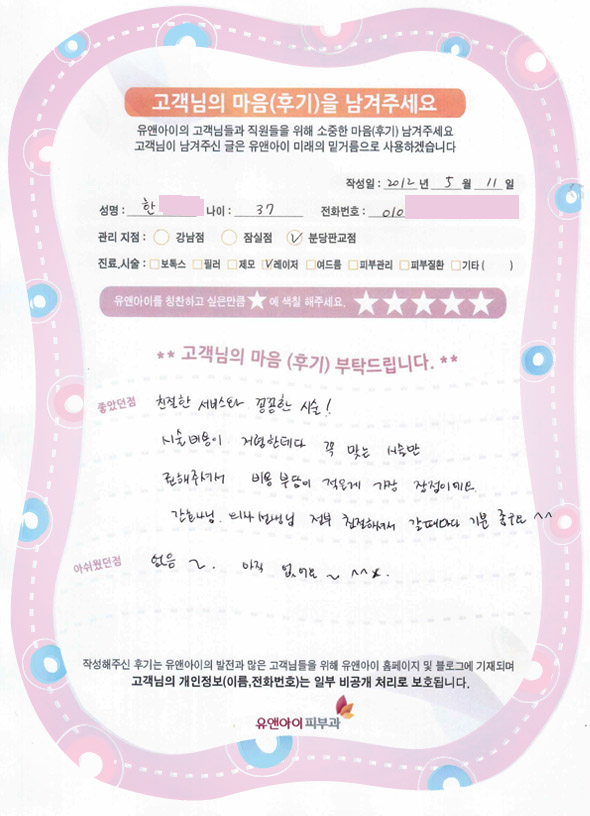 고객님의 마음(후기)을 남겨주세요
유앤아이의 고객님들과 직원들을 위해 소중한 마음(후기) 남겨주세요
고객님이 남겨주신 글은 유앤아이 미래의 밑거름으로 사용하겠습니다
작성일 : 2012 년 5 월 11 일
성명 : 한 나이 : 37 전화번호 : 010
관리 지점 : 강남점 잠실점 분당판교점
진료,시술 : 보톡스 필러 제모 레이저 여드름 피부관리 피부질환 기타 ( )
유앤아이를 칭찬하고 싶은만큼 ★ 에 색칠 해주세요. ★★★★★
** 고객님의 마음 (후기) 부탁드립니다. **
좋았던점 친절한 서비스와 꼼꼼한 시술!
시술비용이 저렴한데다 꼭 맞는 시술만
권해주셔서 비용 부담이 적은게 가장 장점이예요.
간호사님. 의사선생님 전부 친절하셔서 갈때마다 기분 좋구요 ^^
아쉬웠던점 없음 ~. 아직 없어요 ~ ^^*.
작성해주신 후기는 유앤아이의 발전과 많은 고객님들을 위해 유앤아이 홈페이지 및 블로그에 기재되며
고객님의 개인정보(이름,전화번호)는 일부 비공개 처리로 보호됩니다.
유앤아이피부과